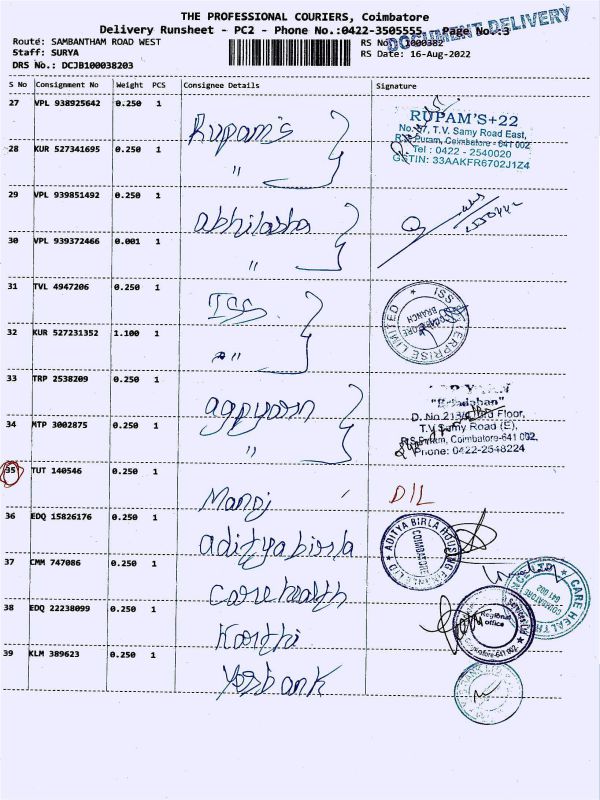 THE PROFESSIONAL COURIERS, Coimbatore
Delivery Runsheet - PC2 - Phone No.:0422-3505555 Page No.:3
DOCUMENT DELIVERY
Route: SAMBANTHAM ROAD WEST
RS No 1000382
Staff: SURYA
RS Date: 16-Aug-2022
DRS No.: DCJB100038203
S No Consignment No Weight PCS Consignee Details Signature
27 VPL 938925642 0.250 1 Rupam's
RUPAM'S+22
T.V. Samy Road East,
Puram, Coimbatore - 641 002
Tel : 0422 - 2540020
GSTIN: 33AAKFR6702J1Z4
28 KUR 527341695 0.250 1 "
29 VPL 939851492 0.250 1 abhilasha
30 VPL 939372466 0.001 1 "
31 TVL 4947206 0.250 1 ISS
ISS ERPRISE LIMITED
BRANCH
32 KUR 527231352 1.100 1 "
33 TRP 2538209 0.250 1
34 MTP 3002875 0.250 1 "
Floor,
T.V Samy Road (E),
Coimbatore-641 002.
Phone: 0422-2548224
35 TUT 140546 0.250 1 Manoj DIL
36 EDQ 15826176 0.250 1 adityabirla
ADITYA BIRLA HOUSING FINANCE LTD
COIMBATORE
37 CMM 747086 0.250 1 carehealth
CARE HEALTH
COIMBATORE
641 002
38 EDQ 22238099 0.250 1 Karthi
Regional
office
39 KLM 389623 0.250 1 Yesbank